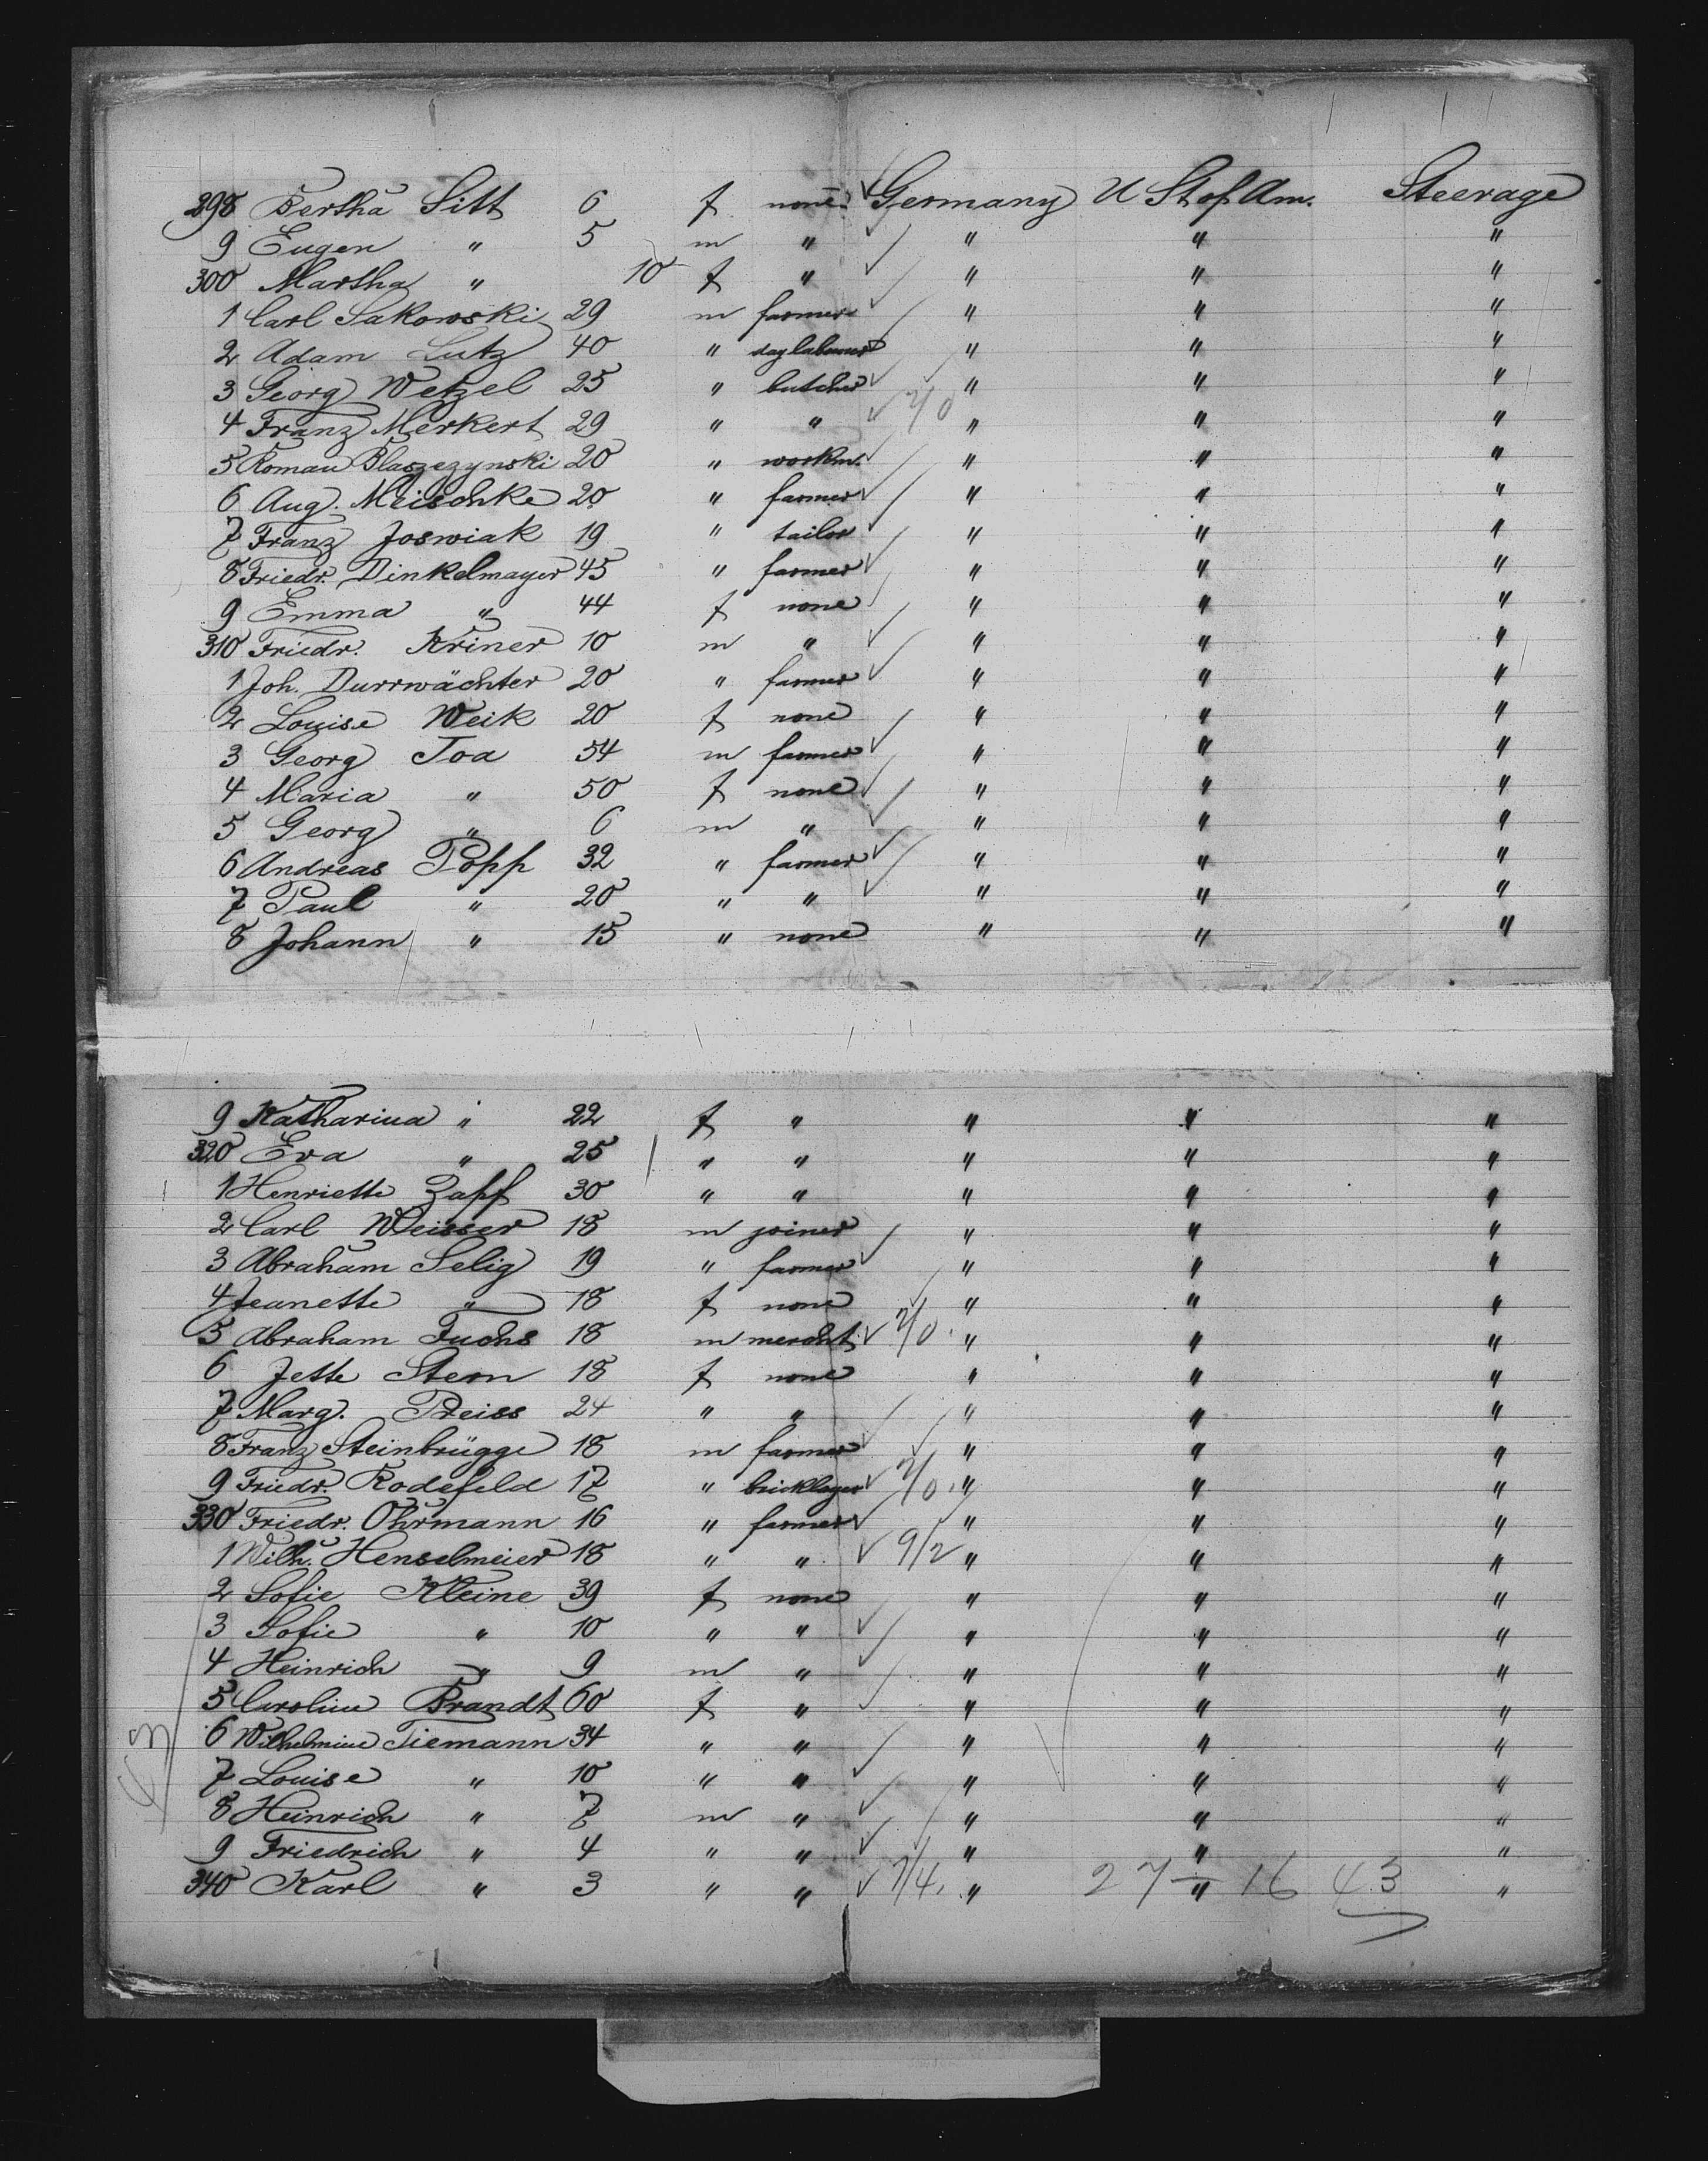 298 Bertha Sitt 6 f none Germany U St of Am. Steerage
9 Eugen " 5 m " " " "
300 Martha " 10 f " " " "
1 Carl Sakowski 29 m farmer " " "
2 Adam Lutz 40 " day labourer " " "
3 Georg Wetzel 25 " butcher " " "
4 Franz Merkert 29 " " 2/0 " " "
5 Roman Blaszezynski 20 " workm. " " "
6 Aug. Meischke 20 " farmer " " "
7 Franz Joswiak 19 " tailor " " "
8 Friedr. Dinkelmayer 45 " farmer " " "
9 Emma " 44 f none " " "
310 Friedr. Kriner 10 m " " " "
1 Joh. Durrwächter 20 " farmer " " "
2 Louise Weik 20 f none " " "
3 Georg Toa 54 m farmer " " "
4 Maria " 50 f none " " "
5 Georg " 6 m " " " "
6 Andreas Popp 32 " farmer " " "
7 Paul " 20 " " " " "
8 Johann " 15 " none " " "
9 Katharina " 22 f " " " "
320 Eva " 25 " " " " "
1 Henriette Zapf 30 " " " " "
2 Carl Weisser 18 m joiner " " "
3 Abraham Selig 19 " farmer " " "
4 Jeanette " 18 f none " " "
5 Abraham Fuchs 18 m mercht. 2/0 " " "
6 Jette Stern 18 f none " " "
7 Marg. Preiss 24 " " " " "
8 Franz Steinbrügge 18 m farmer " " "
9 Friedr. Rodefeld 17 " bricklayer 2/0 " " "
330 Friedr. Öhrmann 16 " farmer " " "
1 Wilh. Henselmeier 18 " " 9/2 " " "
2 Sofie Kleine 39 f none " " "
3 Sofie " 10 " " " " "
4 Heinrich " 9 m " " " "
5 Caroline Brandt 60 f " " " "
6 Wilhelmine Tiemann 34 " " " " "
7 Louise " 10 " " " " "
8 Heinrich " 7 m " " " "
9 Friedrich " 4 " " " " "
340 Karl " 3 " " 7/4 " 27 " 16 43 "